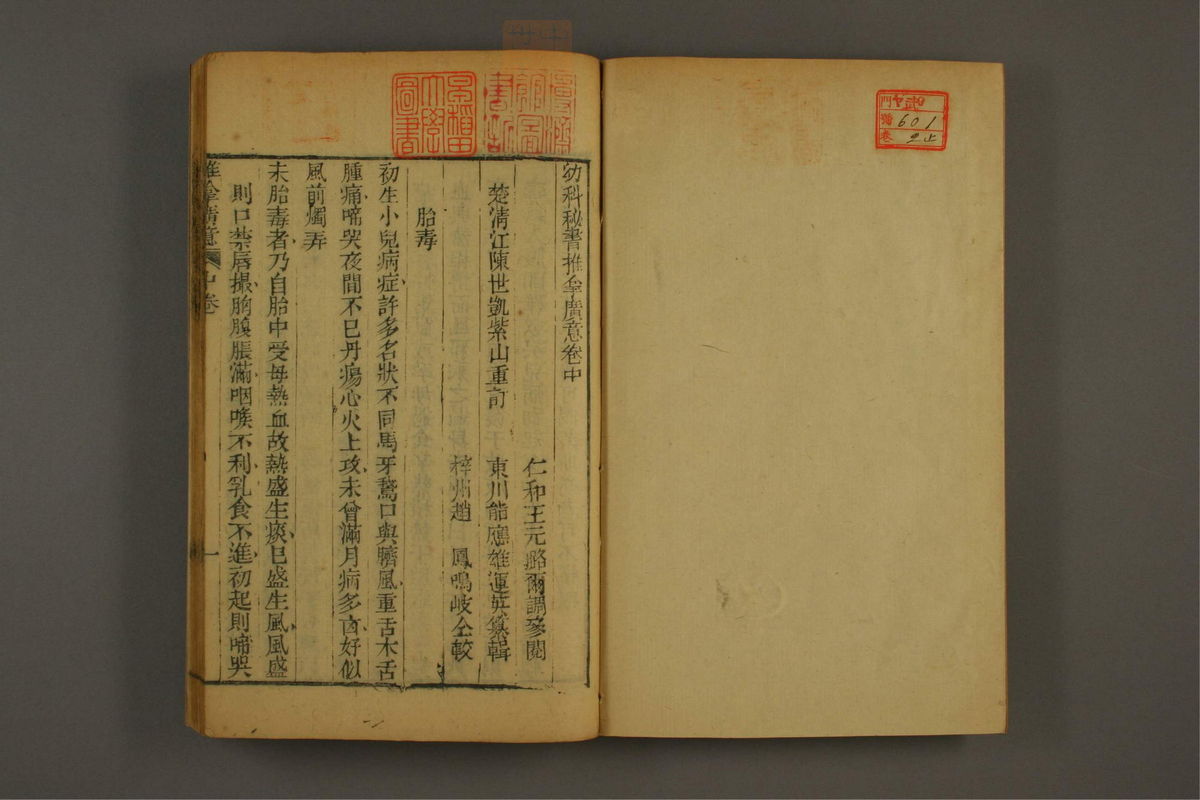 幼科秘書推拿廣意卷中
仁和王元璐爾調參閱
楚清江陳世凱紫山重訂
東川熊應雄運英纂輯
梓州趙 鳳鳴岐仝較
胎毒
初生小兒病症許多名狀不同馬牙鵞口與臍風重舌木舌
腫痛啼哭夜間不已丹瘍心火上攻未曾滿月病多凶好似
風前燭弄
夫胎毒者乃自胎中受母熱血故熱盛生痰巳盛生風風盛
則口禁唇撮胸腹脹滿咽喉不利乳食不進初起則啼哭
推拿廣意
中卷
一
早稻田大學圖書
門
號 601
卷